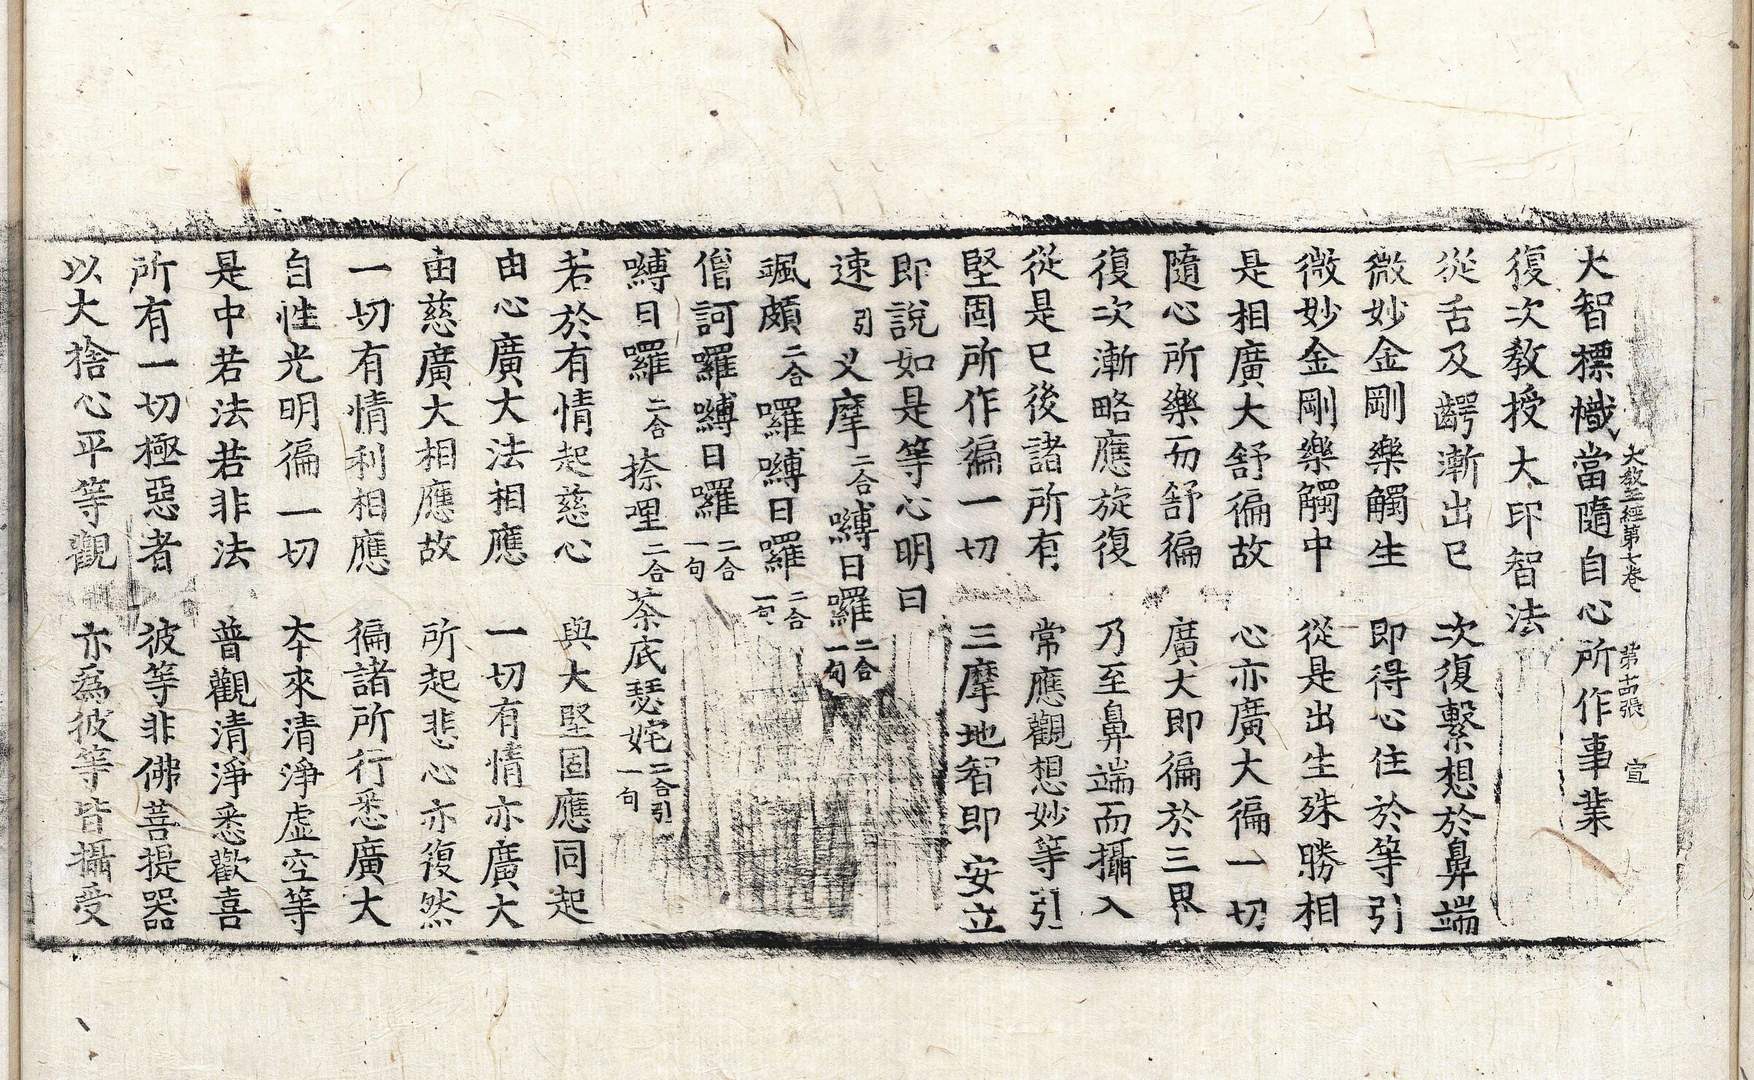 大教王經第七卷　第十四張　宣
大智標幟當隨自心所作事業
復次教授大印智法
從舌及齶漸出已　次復繫想於鼻端
微妙金剛樂觸生　即得心住於等引
微妙金剛樂觸中　從是出生殊勝相
是相廣大舒徧故　心亦廣大徧一切
隨心所樂而舒徧　廣大即徧於三界
復次漸略應旋復　乃至鼻端而攝入
從是已後諸所有　常應觀想妙等引
堅固所作徧一切　三摩地智即安立
即說如是等心明曰
速引叉摩二合嚩日囉二合一句
颯頗二合囉嚩日囉二合一句
僧訶囉嚩日囉二合一句
嚩日囉二合捺哩二合茶底瑟姹二合引一句
若於有情起慈心　與大堅固應同起
由心廣大法相應　一切有情亦廣大
由慈廣大相應故　所起悲心亦復然
一切有情利相應　徧諸所行悉廣大
自性光明徧一切　本來清淨虛空等
是中若法若非法　普觀清淨悉歡喜
所有一切極惡者　彼等非佛菩提器
以大捨心平等觀　亦為彼等皆攝受